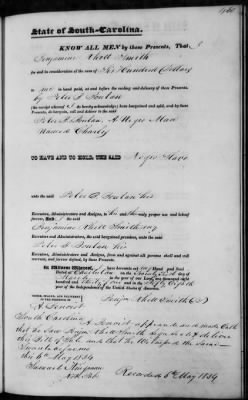 State of South-Carolina.
KNOW ALL MEN by these Presents, That I
Benjamin Rhett Smith
for and in consideration of the sum of Six Hundred Dollars
to me in hand paid, at and before the sealing and delivery of these Presents,
by Peter S.
(the receipt whereof I do hereby acknowledge) have bargained and sold, and by these
Presents, do bargain, sell and deliver to the said
Peter S. A Negro Man
Named Charley
TO HAVE AND TO HOLD, THE SAID Negro Slave
unto the said Peter S. his
Executors, Administrators and Assigns, to his and their only proper use and behoof
forever. And I the said
Benjamin Rhett Smith my
Executors and Administrators, the said bargained premises, unto the said
Peter S. his
Executors, Administrators and Assigns, from and against all persons shall and will
warrant, and forever defend, by these Presents.
In Witness Whereof, I have hereunto set my Hand and Seal
Dated at Charleston on the
day of in the year of our Lord one thousand eight
hundred and thirty four and in the fifty eighth
year of the Independence of the United States of America.
SIGNED, SEALED, AND DELIVERED
IN THE PRESENCE OF
Benjn Rhett Smith
South Carolina
A. appeared and made Oath
that he saw Benjn Rhett Smith sign seal & deliver
this Bill of Sale and that he Witnessed the same
Sworn to before me
this 6th May 1834
Recorded 6th May 1834